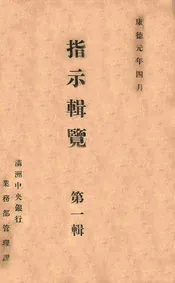 康德元年四月
指示輯覽 第一輯
滿洲中央銀行
業務部管理課